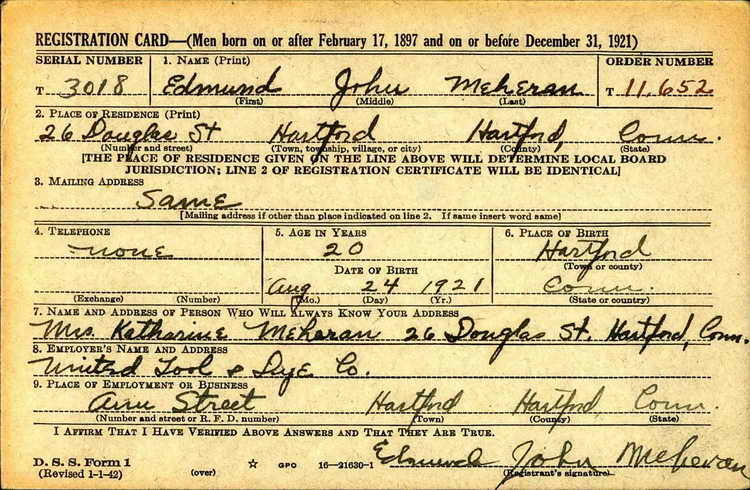 REGISTRATION CARD—(Men born on or after February 17, 1897 and on or before December 31, 1921)
SERIAL NUMBER 1. NAME (Print) ORDER NUMBER
T 3018 Edmund John Meheran T 11,652
(First) (Middle) (Last)
2. PLACE OF RESIDENCE (Print)
26 Douglas St Hartford Hartford, Conn.
(Number and street) (Town, township, village, or city) (County) (State)
[THE PLACE OF RESIDENCE GIVEN ON THE LINE ABOVE WILL DETERMINE LOCAL BOARD
JURISDICTION; LINE 2 OF REGISTRATION CERTIFICATE WILL BE IDENTICAL]
3. MAILING ADDRESS
Same
[Mailing address if other than place indicated on line 2. If same insert word same]
4. TELEPHONE 5. AGE IN YEARS 6. PLACE OF BIRTH
none 20 Hartford
DATE OF BIRTH (Town or county)
Aug 24 1921 Conn.
(Exchange) (Number) (Mo.) (Day) (Yr.) (State or country)
7. NAME AND ADDRESS OF PERSON WHO WILL ALWAYS KNOW YOUR ADDRESS
Mrs. Katharine Meheran 26 Douglas St. Hartford, Conn.
8. EMPLOYER'S NAME AND ADDRESS
United Tool & Dye Co.
9. PLACE OF EMPLOYMENT OR BUSINESS
Ann Street Hartford Hartford, Conn.
(Number and street or R. F. D. number) (Town) (County) (State)
I AFFIRM THAT I HAVE VERIFIED ABOVE ANSWERS AND THAT THEY ARE TRUE.
D. S. S. Form 1 Edmund John Meheran
(Revised 1-1-42) (over) ☆ GPO 16—21630-1 (Registrant's signature)